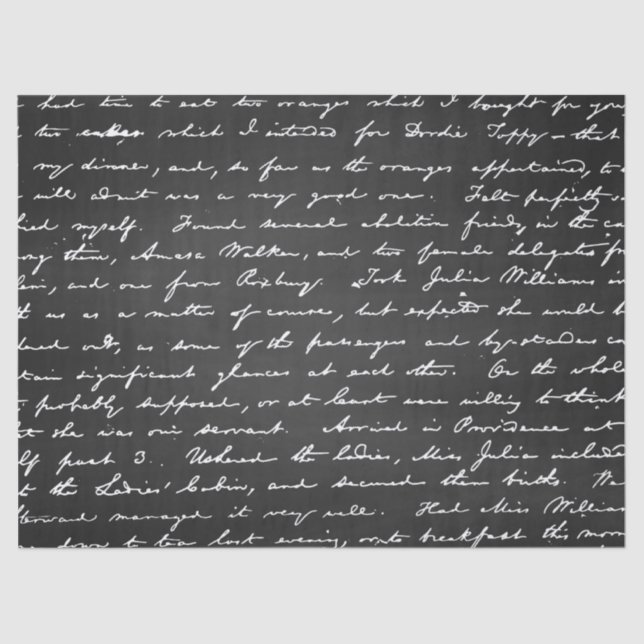 had time to eat two oranges which I bought for you
two cakes which I intended for Dordie Toppy – that
my dinner, and, so far as the oranges appertained,
will admit was a very good one. Felt perfectly
myself. Found several abolition friends, in the
them, Amasa Walker, and two female delegates
and one from Roxbury. Took Julia Williams
us as a matter of course, but expected she would b
out, as some of the passengers and by-standers
significant glances at each other. On the whole
probably supposed, or at least were willing to think
she was our servant. Arrived in Providence at
lf past 3. Ushered the ladies, Miss Julia include
the Ladies' Cabin, and secured them births.
terward managed it very well. Had Miss William
down to tea last evening, & to breakfast this mor